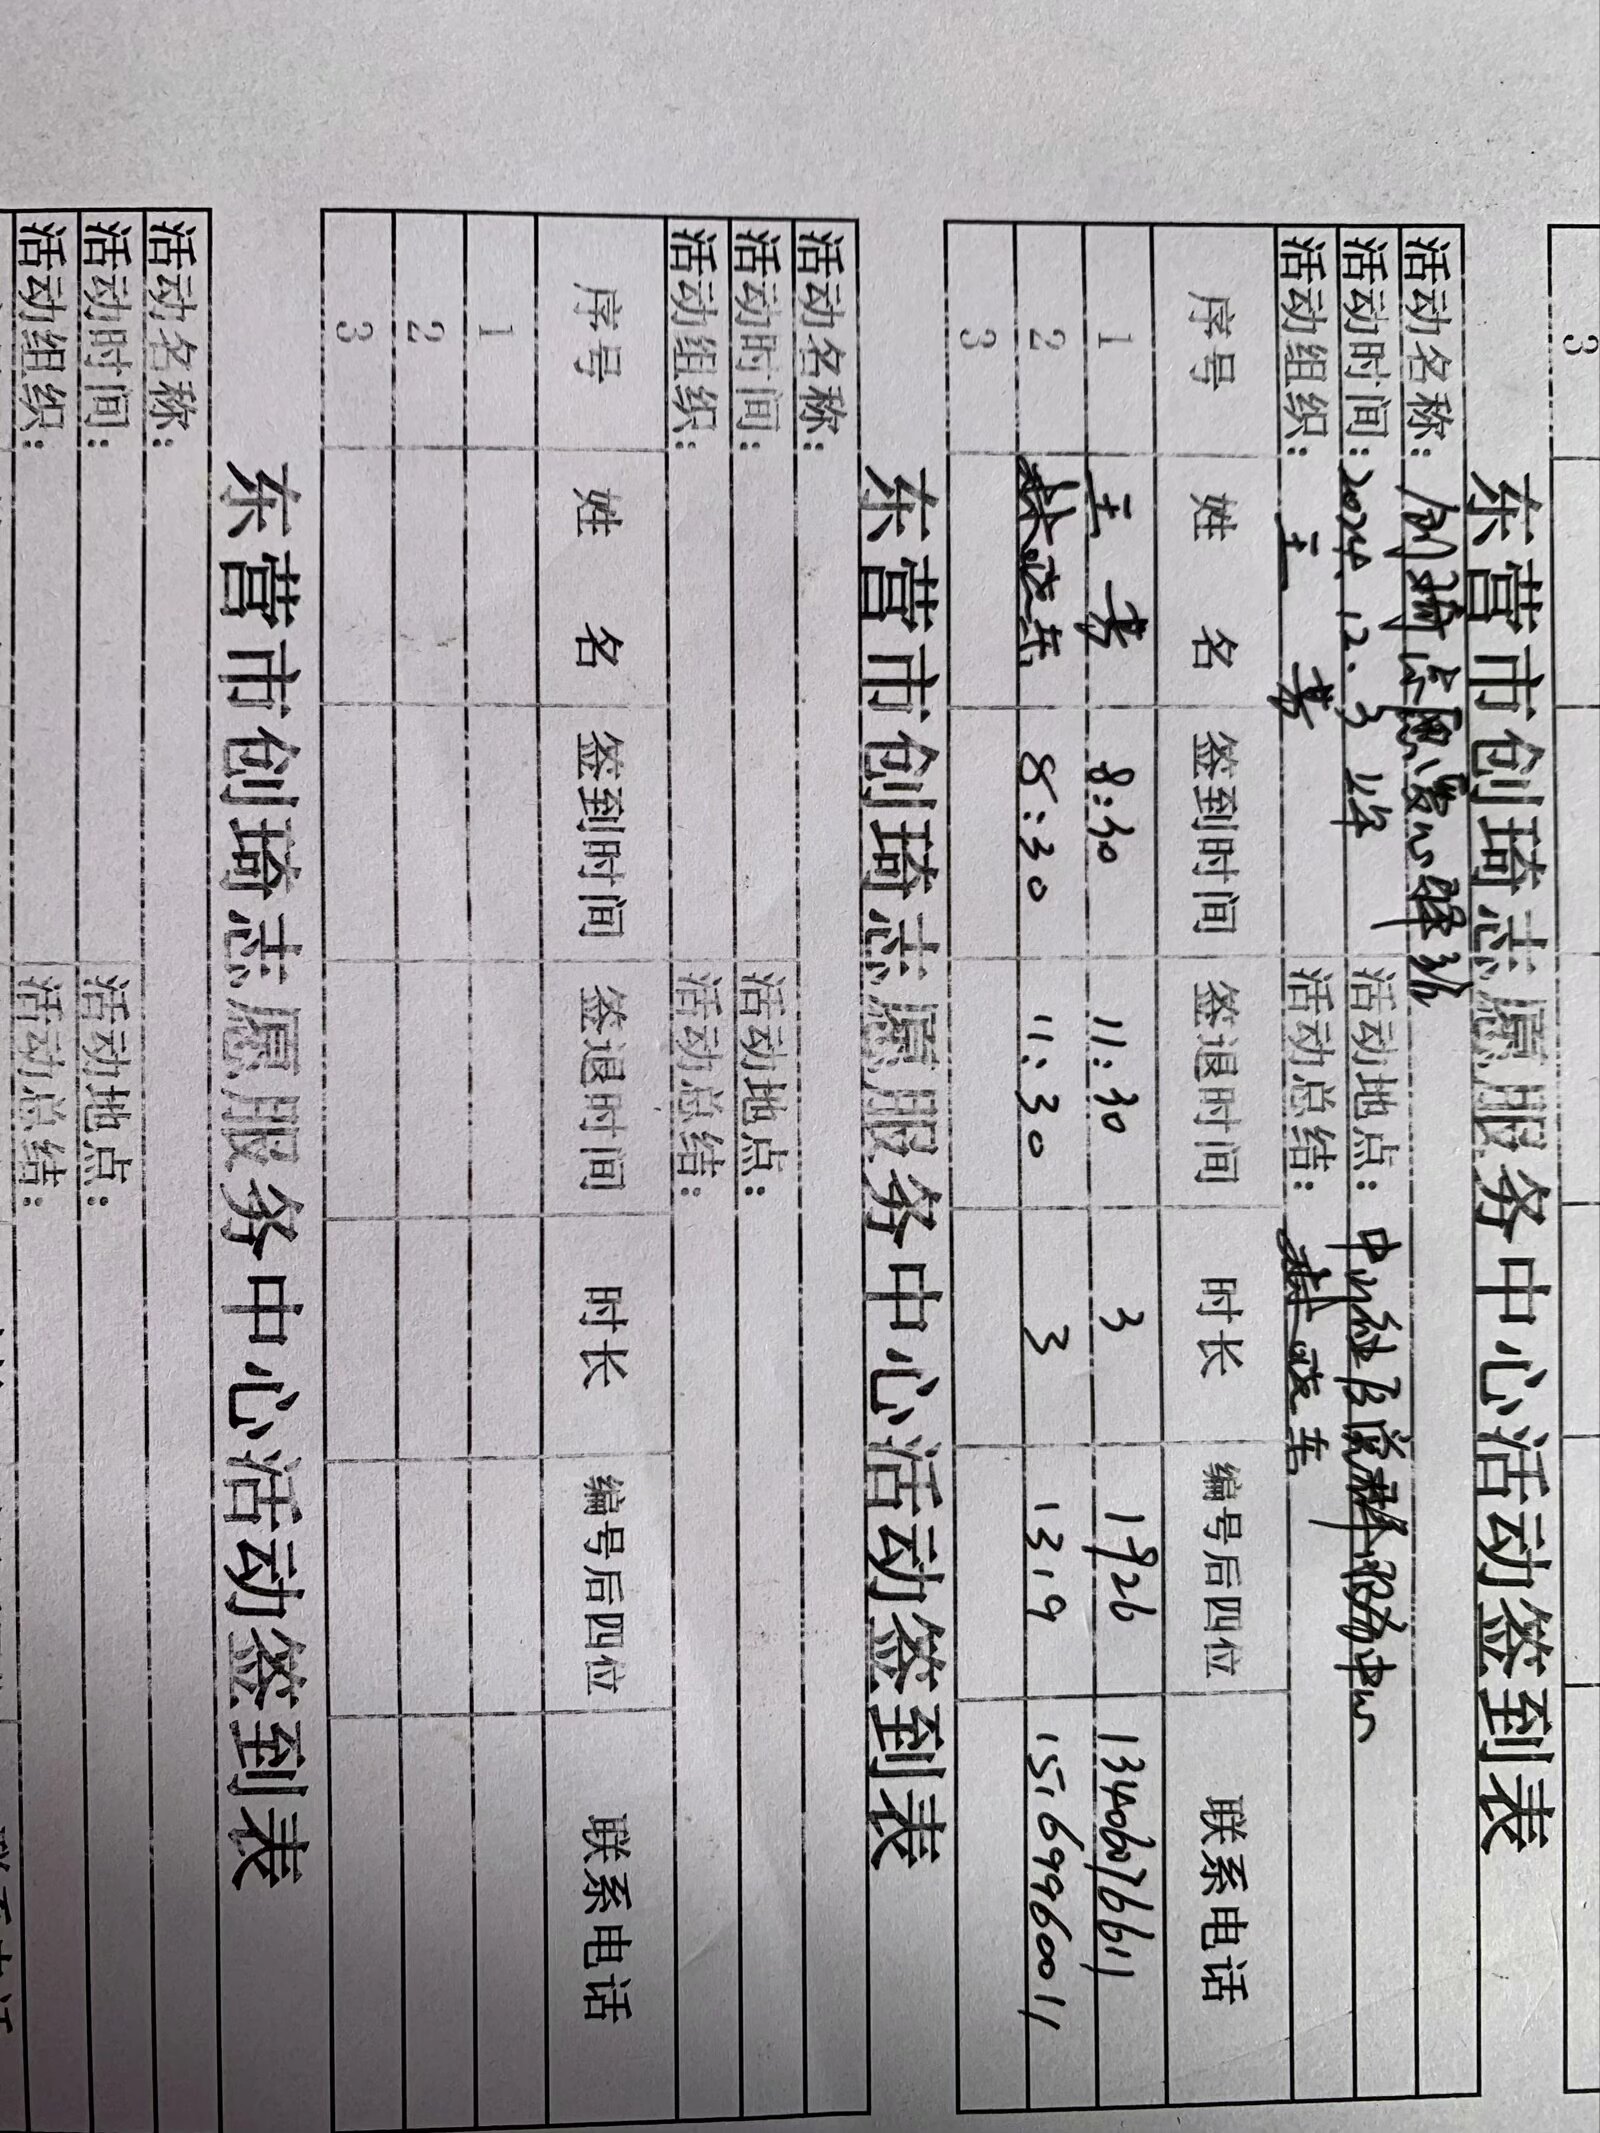 3
东营市创琦志愿服务中心活动签到表
活动名称: 创琦志愿爱心驿站
活动时间: 2024.12.3 上午 活动地点: 中山社区党群服务中心
活动组织: 王芳 活动总结:
序号 姓名 签到时间 签退时间 时长 编号后四位 联系电话
1 王芳 8:30 11:30 3 1926 13406076611
2 8:30 11:30 3 1319 15169996001
3
东营市创琦志愿服务中心活动签到表
活动名称:
活动时间: 活动地点:
活动组织: 活动总结:
序号 姓名 签到时间 签退时间 时长 编号后四位 联系电话
1
2
3
东营市创琦志愿服务中心活动签到表
活动名称:
活动时间: 活动地点:
活动组织: 活动总结: